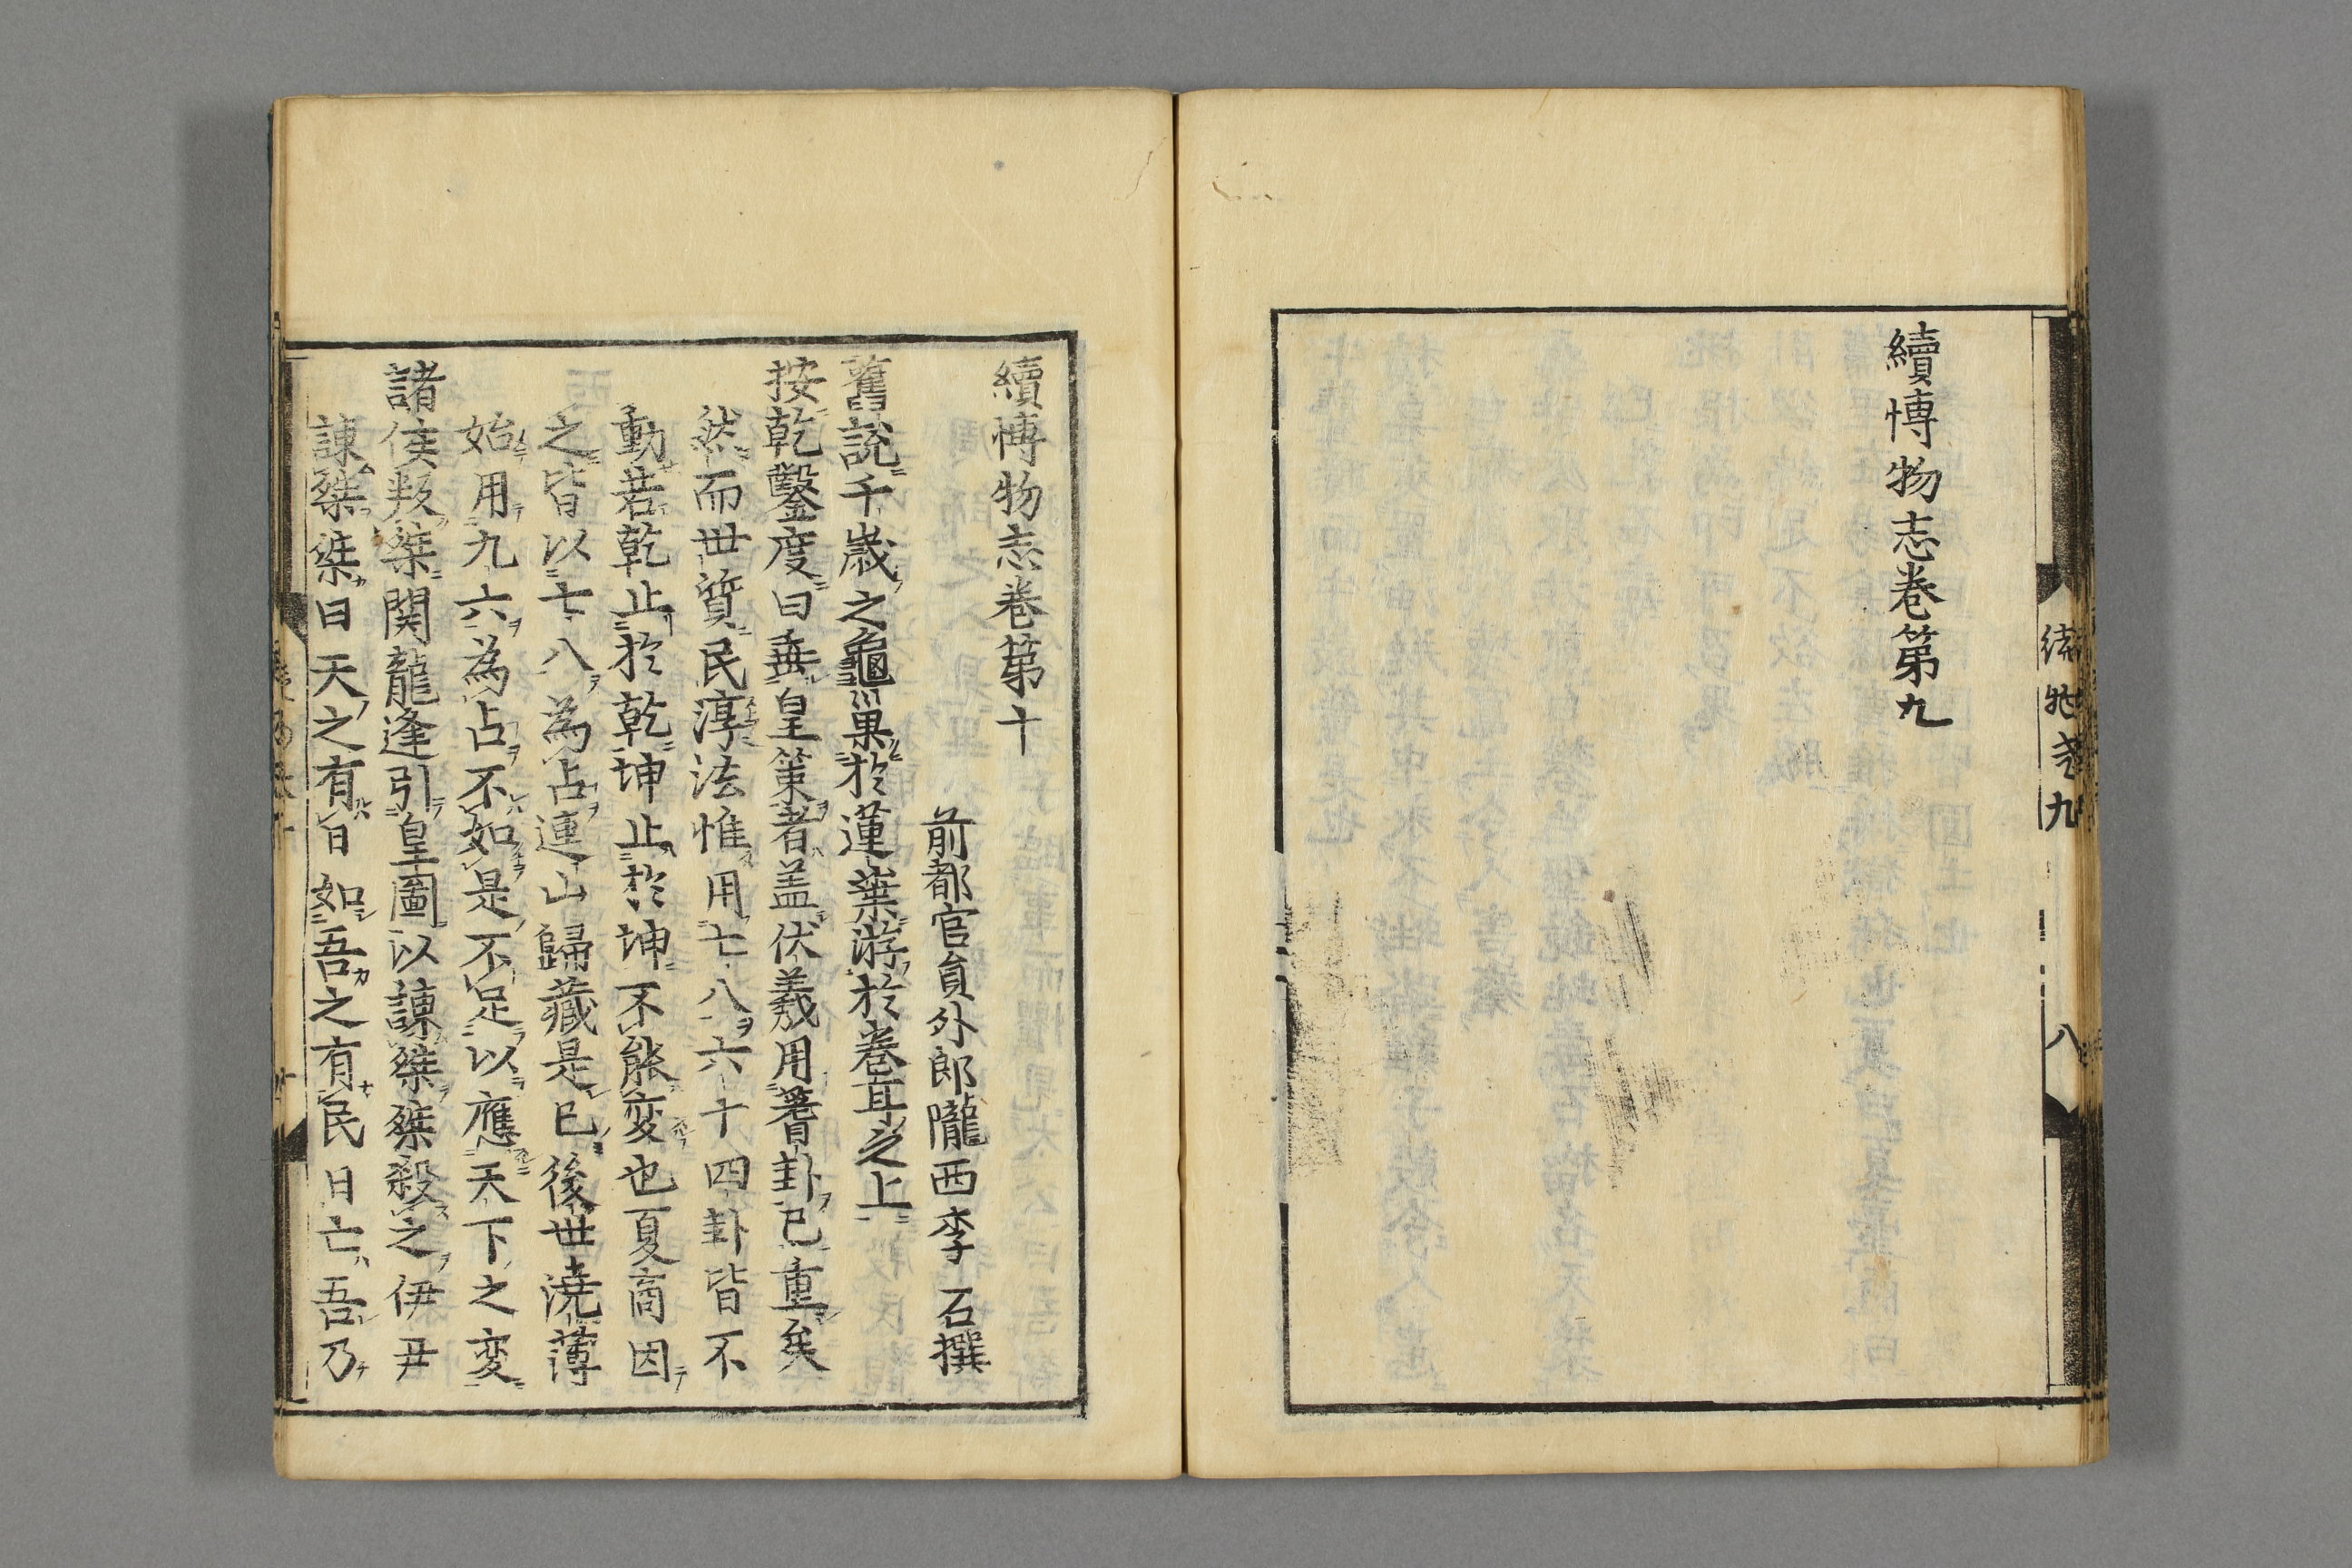 續博物志卷第九
續物志 九
八
續博物志卷第十
前都官員外郎隴西李石撰
舊說千歲之龜巢於蓮葉游於卷耳之上
按乾鑿度曰垂皇策者盖伏羲用蓍卦已重矣
然而世質民淳法惟用七八六十四卦皆不
動若乾止於乾坤止於坤不能変也夏商因
之皆以七八為占連山歸藏是已後世澆薄
始用九六為占不如是不足以應天下之変
諸侯叛桀関龍逢引皇圖以諌桀桀殺之伊尹
諌桀桀曰天之有日如吾之有民日亡吾乃